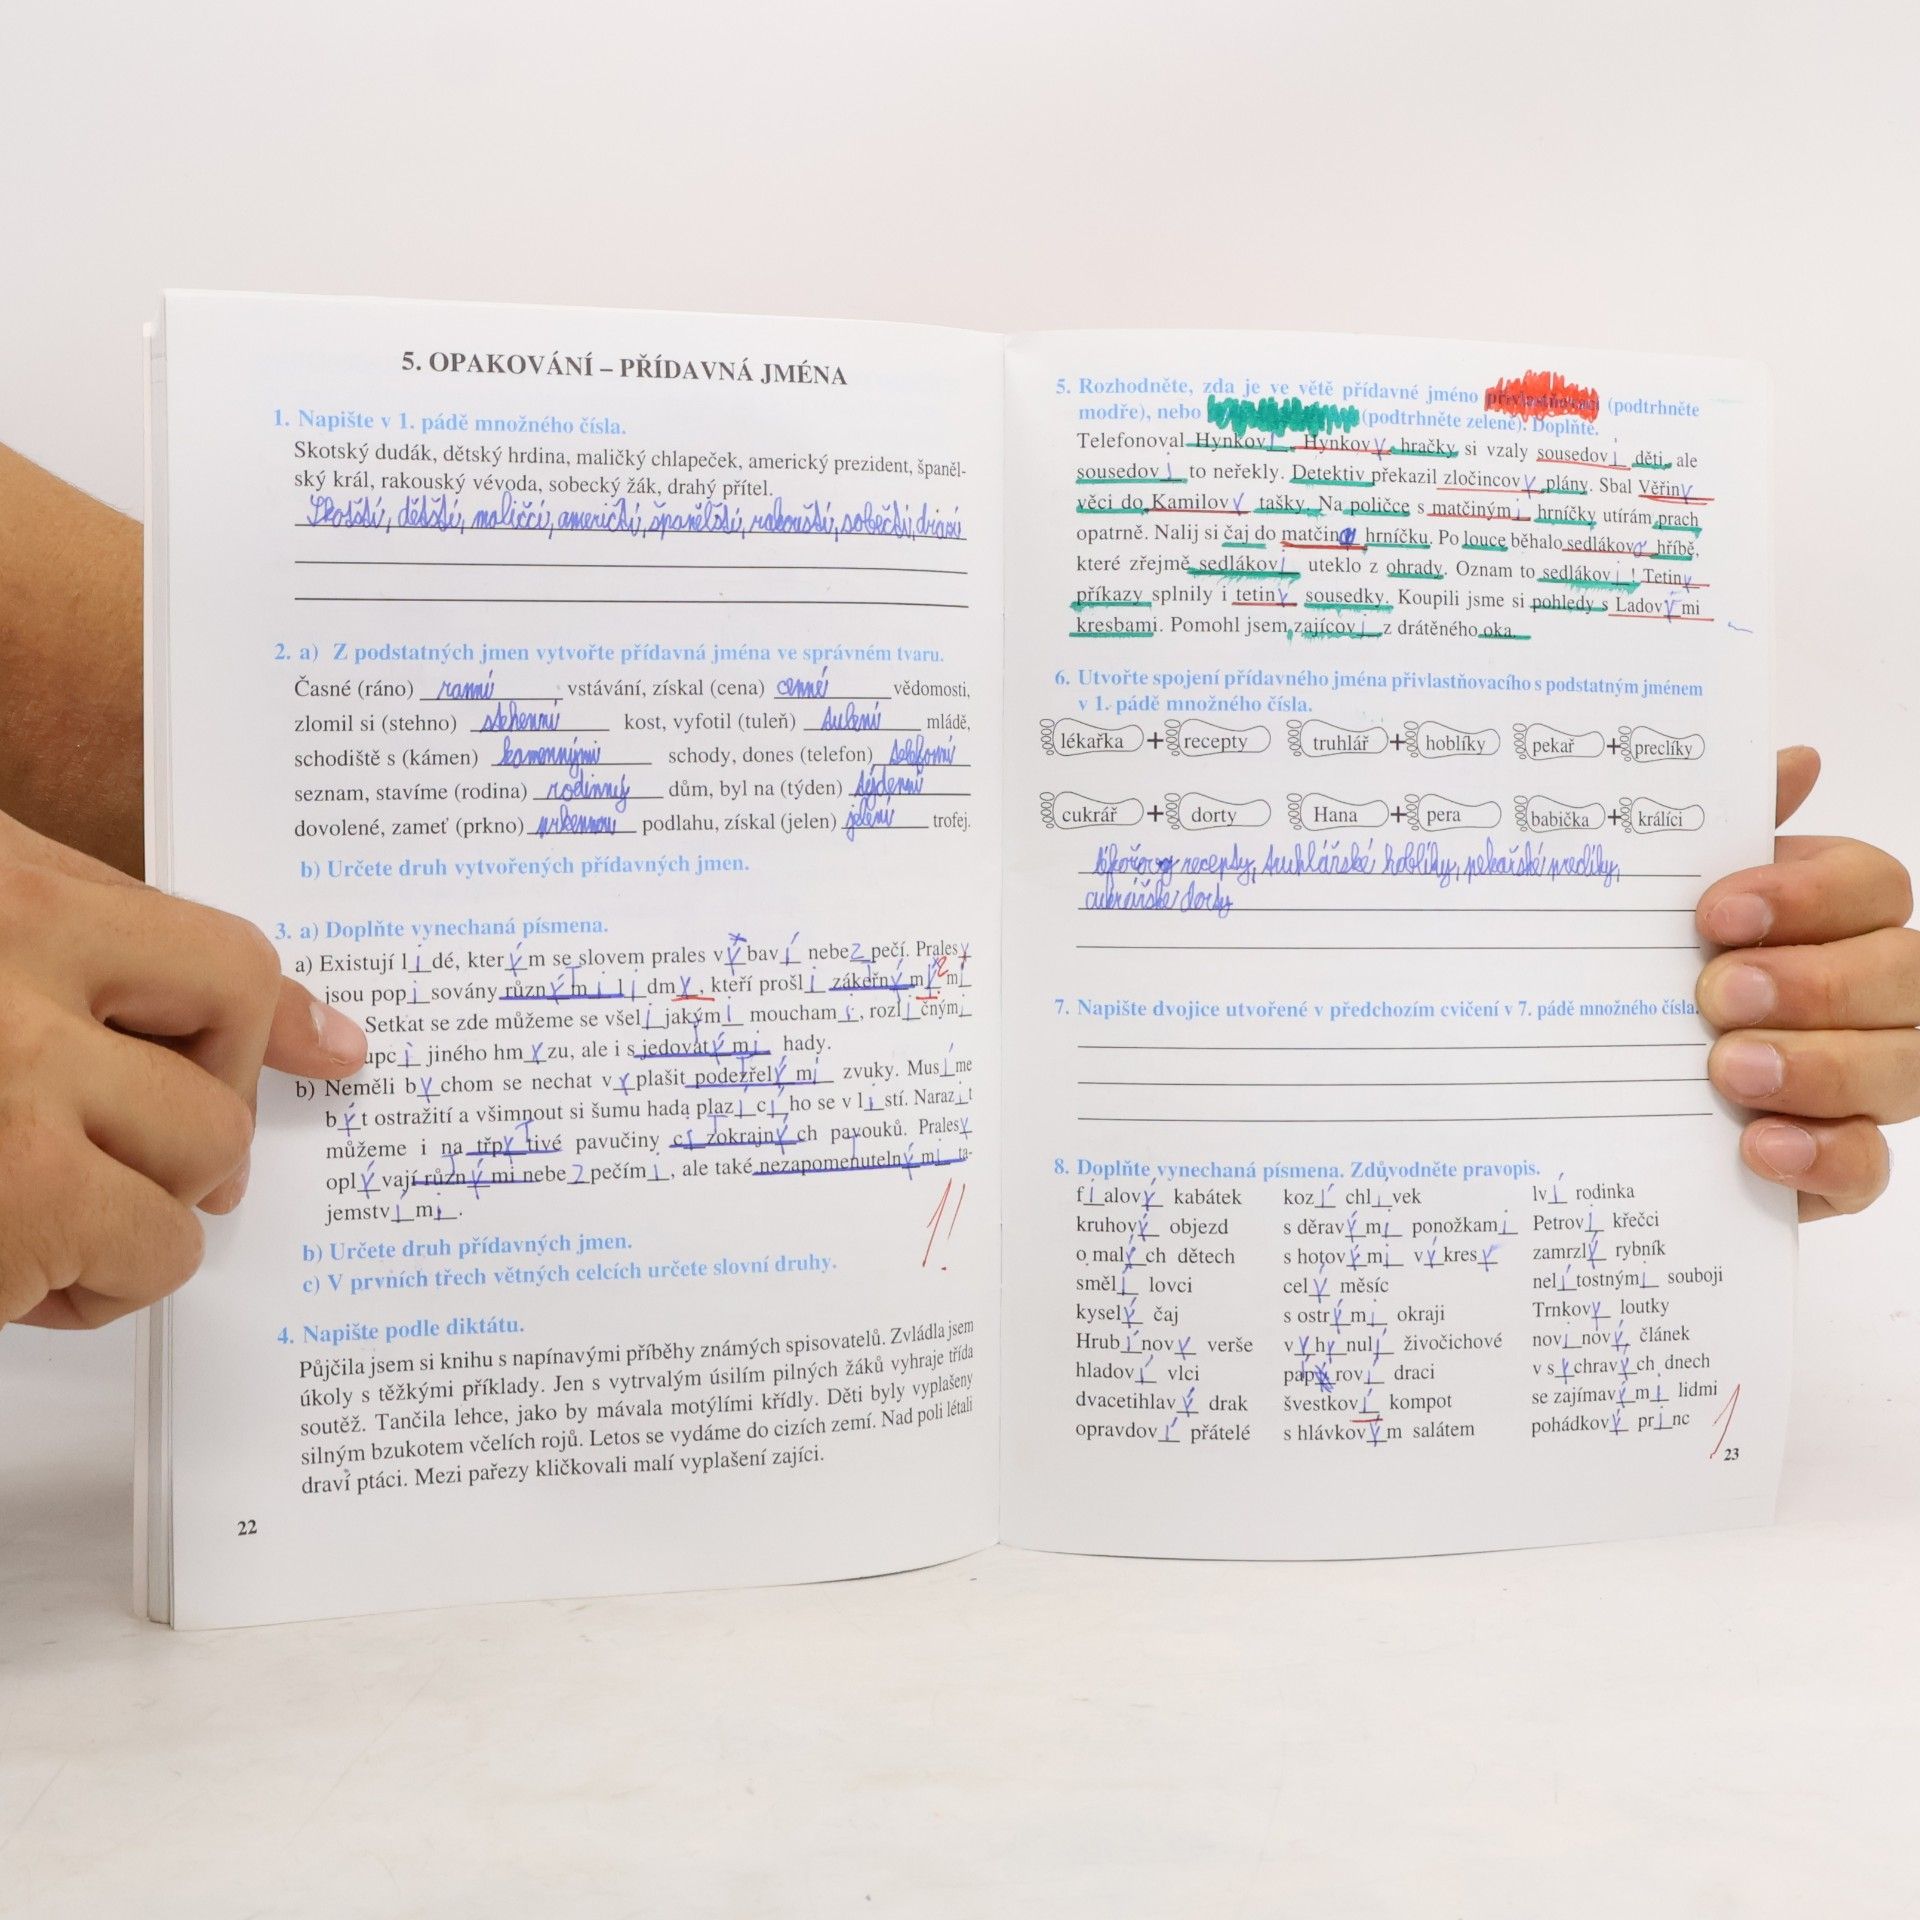 5. OPAKOVÁNÍ – PŘÍDAVNÁ JMÉNA
1. Napište v 1. pádě množného čísla.
Skotský dudák, dětský hrdina, maličký chlapeček, americký prezident, španěl-
ský král, rakouský vévoda, sobecký žák, drahý přítel.
Skotští, dětští, maličcí, američtí, španělští, rakouští, sobečtí, drazí
2. a) Z podstatných jmen vytvořte přídavná jména ve správném tvaru.
Časné (ráno) ranní vstávání, získal (cena) cenné vědomosti,
zlomil si (stehno) stehenní kost, vyfotil (tuleň) tulení mládě,
schodiště s (kámen) kamennými schody, dones (telefon) telefonní
seznam, stavíme (rodina) rodinný dům, byl na (týden) týdenní
dovolené, zameť (prkno) prkennou podlahu, získal (jelen) jelení trofej.
b) Určete druh vytvořených přídavných jmen.
3. a) Doplňte vynechaná písmena.
a) Existují lidé, kterým se slovem prales vybaví nebezpečí. Pralesy
jsou popisovány různými lidmy, kteří prošli zákeřnými
Setkat se zde můžeme se všelijakými mouchami, rozličnými
upci jiného hmyzu, ale i s jedovatými hady.
b) Neměli bychom se nechat vyplašit podezřelými zvuky. Musíme
být ostražití a všimnout si šumu hada plazícího se v listí. Narazit
můžeme i na třpytivé pavučiny cizokrajných pavouků. Pralesy
oplývají různými nebezpečími, ale také nezapomenutelnými ta-
jemstvími.
b) Určete druh přídavných jmen.
c) V prvních třech větných celcích určete slovní druhy.
4. Napište podle diktátu.
Půjčila jsem si knihu s napínavými příběhy známých spisovatelů. Zvládla jsem
úkoly s těžkými příklady. Jen s vytrvalým úsilím pilných žáků vyhraje třída
soutěž. Tančila lehce, jako by mávala motýlími křídly. Děti byly vyplašeny
silným bzukotem včelích rojů. Letos se vydáme do cizích zemí. Nad poli létali
draví ptáci. Mezi pařezy kličkovali malí vyplašení zajíci.
22
5. Rozhodněte, zda je ve větě přídavné jméno přivlastňovací (podtrhněte
modře), nebo (podtrhněte zeleně). Doplňte.
Telefonoval Hynkovi. Hynkovy hračky si vzaly sousedovi děti, ale
sousedovi to neřekly. Detektiv překazil zločincovy plány. Sbal Věřiny
věci do Kamilovy tašky. Na poličce s matčinými hrníčky utírám prach
opatrně. Nalij si čaj do matčina hrníčku. Po louce běhalo sedlákovo hříbě,
které zřejmě sedlákovi uteklo z ohrady. Oznam to sedlákovi! Tetiny
příkazy splnily i tetiny sousedky. Koupili jsme si pohledy s Ladovými
kresbami. Pomohl jsem zajícovi z drátěného oka.
6. Utvořte spojení přídavného jména přivlastňovacího s podstatným jménem
v 1. pádě množného čísla.
lékařka + recepty truhlář + hoblíky pekař + preclíky
cukrář + dorty Hana + pera babička + králíci
recepty, truhlářské hoblíky, pekařské preclíky,
cukrářské dorty
7. Napište dvojice utvořené v předchozím cvičení v 7. pádě množného čísla.
8. Doplňte vynechaná písmena. Zdůvodněte pravopis.
fialový kabátek kozí chlívek lví rodinka
kruhový objezd s děravými ponožkami Petrovi křečci
o malých dětech s hotovými výkresy zamrzlý rybník
smělí lovci celý měsíc nelítostnými souboji
kyselý čaj s ostrými okraji Trnkovy loutky
Hrubínovy verše vyhynulí živočichové novinový článek
hladoví vlci papíroví draci v sychravých dnech
dvacetihlavý drak švestkoví kompot se zajímavými lidmi
opravdoví přátelé s hlávkovým salátem pohádkový princ
23